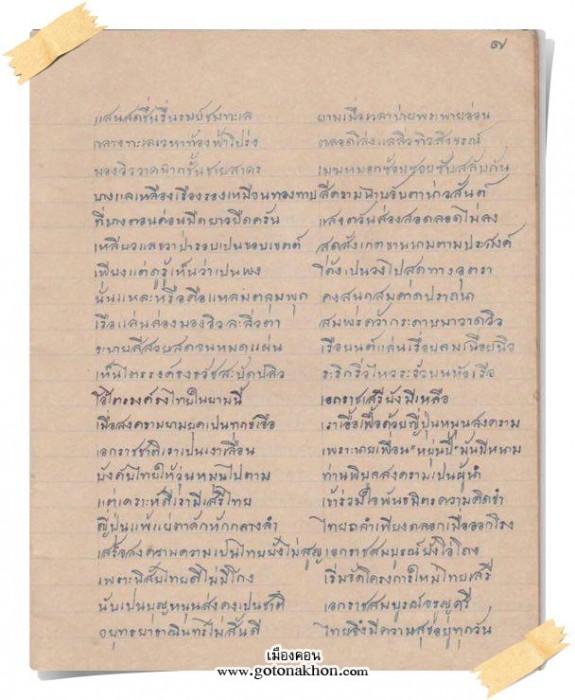 ๗
แสนสดชื่นรื่นรมย์ชมทะเล ยามเมื่อเวลาบ่ายพระพายอ่อน
กลางทะเลเวหาท้องฟ้าโปร่ง ตลอดโล่งแลลิ่วทิวสิงขรณ์
มองวิวาดฉากชั้นชายสาคร เมฆหมอกซ้อนซอยซับสลับกัน
บางแลเหลืองเรืองรองเหมือนทองทาบ สีครามฉาบจับตาน่า
ที่บางตอนค่อนมืดยาวยืด แสงตะวันส่องสอดลอดไม่ลง
เหลียวแลขวาป่ารอบเป็นขอบเขตต์ สุดสังเกตขานนามตามประสงค์
เพียงแต่ดูรู้เห็นว่าเป็นพง โค้งเป็นวงไปสุดทางอุตรา
นั่นแหละหรือคือแหลมตะลุมพุก คง
เรือแล่นล่องมองวิวละลิ่วตา
ระบายสีสวยสดจนหมดแผ่น เรือยนต์แล่นเรื่อยลมเฉื่อยฉิว
เห็นไตรรงค์ธงธวัชสะบัดปลิว ระริกริ้วไหวระรัวบนหัวเรือ
โอ้ไตรรงค์ธงไทยในยามนี้ เอกราชเสรียังมีเหลือ
เมื่อสงครามยามยุคเป็นทุกข์เจือ เราเอื้อเฟื้อด้วยญี่ปุ่นหนุนสงคราม
เอกราชชาติเราเป็นเงาเลื่อน เพราะนายเพื่อน "หยุ่นปี่" มันมีหนาม
บังคับไทยให้วุ่นหมุนไปตาม ท่านพิบูลสงครามเป็นผู้นำ
แต่เคราะห์ดีเรามีเสรีไทย เข้าร่วมใจพันธมิตรความคิดขำ
ญี่ปุ่นแพ้แยตาลักหักกลางลำ ไทยถลำเพียงถลอกเมื่อออกโรง
เสร็จสงครามความเป็นไทยยังไม่สูญ เอกราชสมบูรณ์ยังโอ่โถง
เพราะนิสัยไทยดีไม่มีโกง เริ่มจัดโครงการใหม่ไทยเสรี
นับเป็นบุญหนุนส่งคงเป็นชาติ เอกราชสมบูรณ์จรูญศรี
อยุทธยาธานินทร์ไม่สิ้นดี ไทยจึงมีความสุขอยู่ทุกวัน
เมืองคอน
www.gotonakhon.com